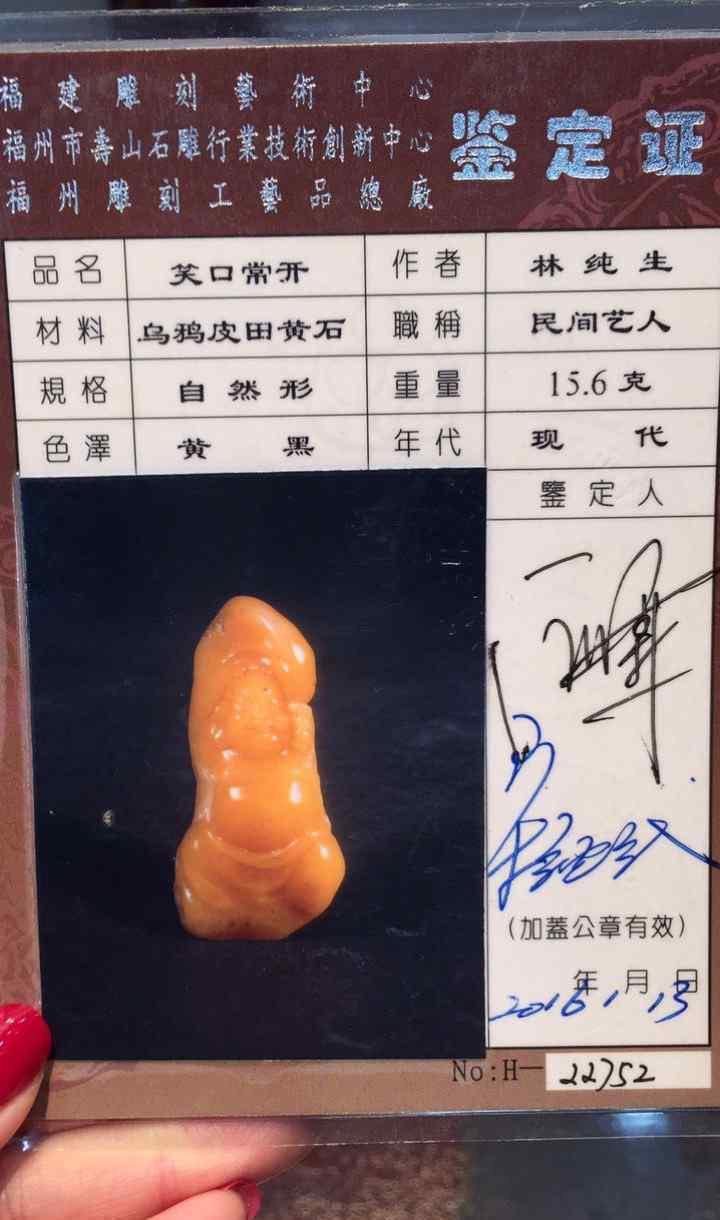 福建雕刻藝術中心
福州市壽山石雕行業技術創新中心
福州雕刻工藝品總廠
鉴定证
品名 笑口常开 作者 林纯生
材料 乌鸦皮田黄石 職稱 民间艺人
規格 自然形 重量 15.6克
色澤 黄 黑 年代 现代
鑒定人
(加蓋公章有效)
年 月 日
2016 1 13
No:H—22752